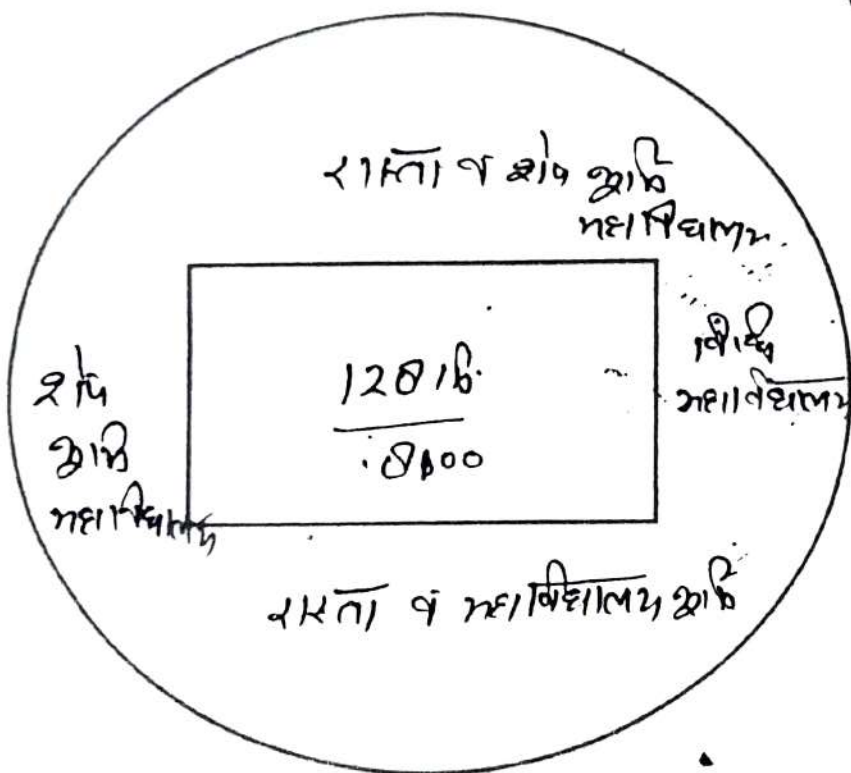 रास्ता व शेष भूमि
महाविद्यालय
शेष
भूमि
महाविद्यालय
विधि
महाविद्यालय
रास्ता व महाविद्यालय भूमि